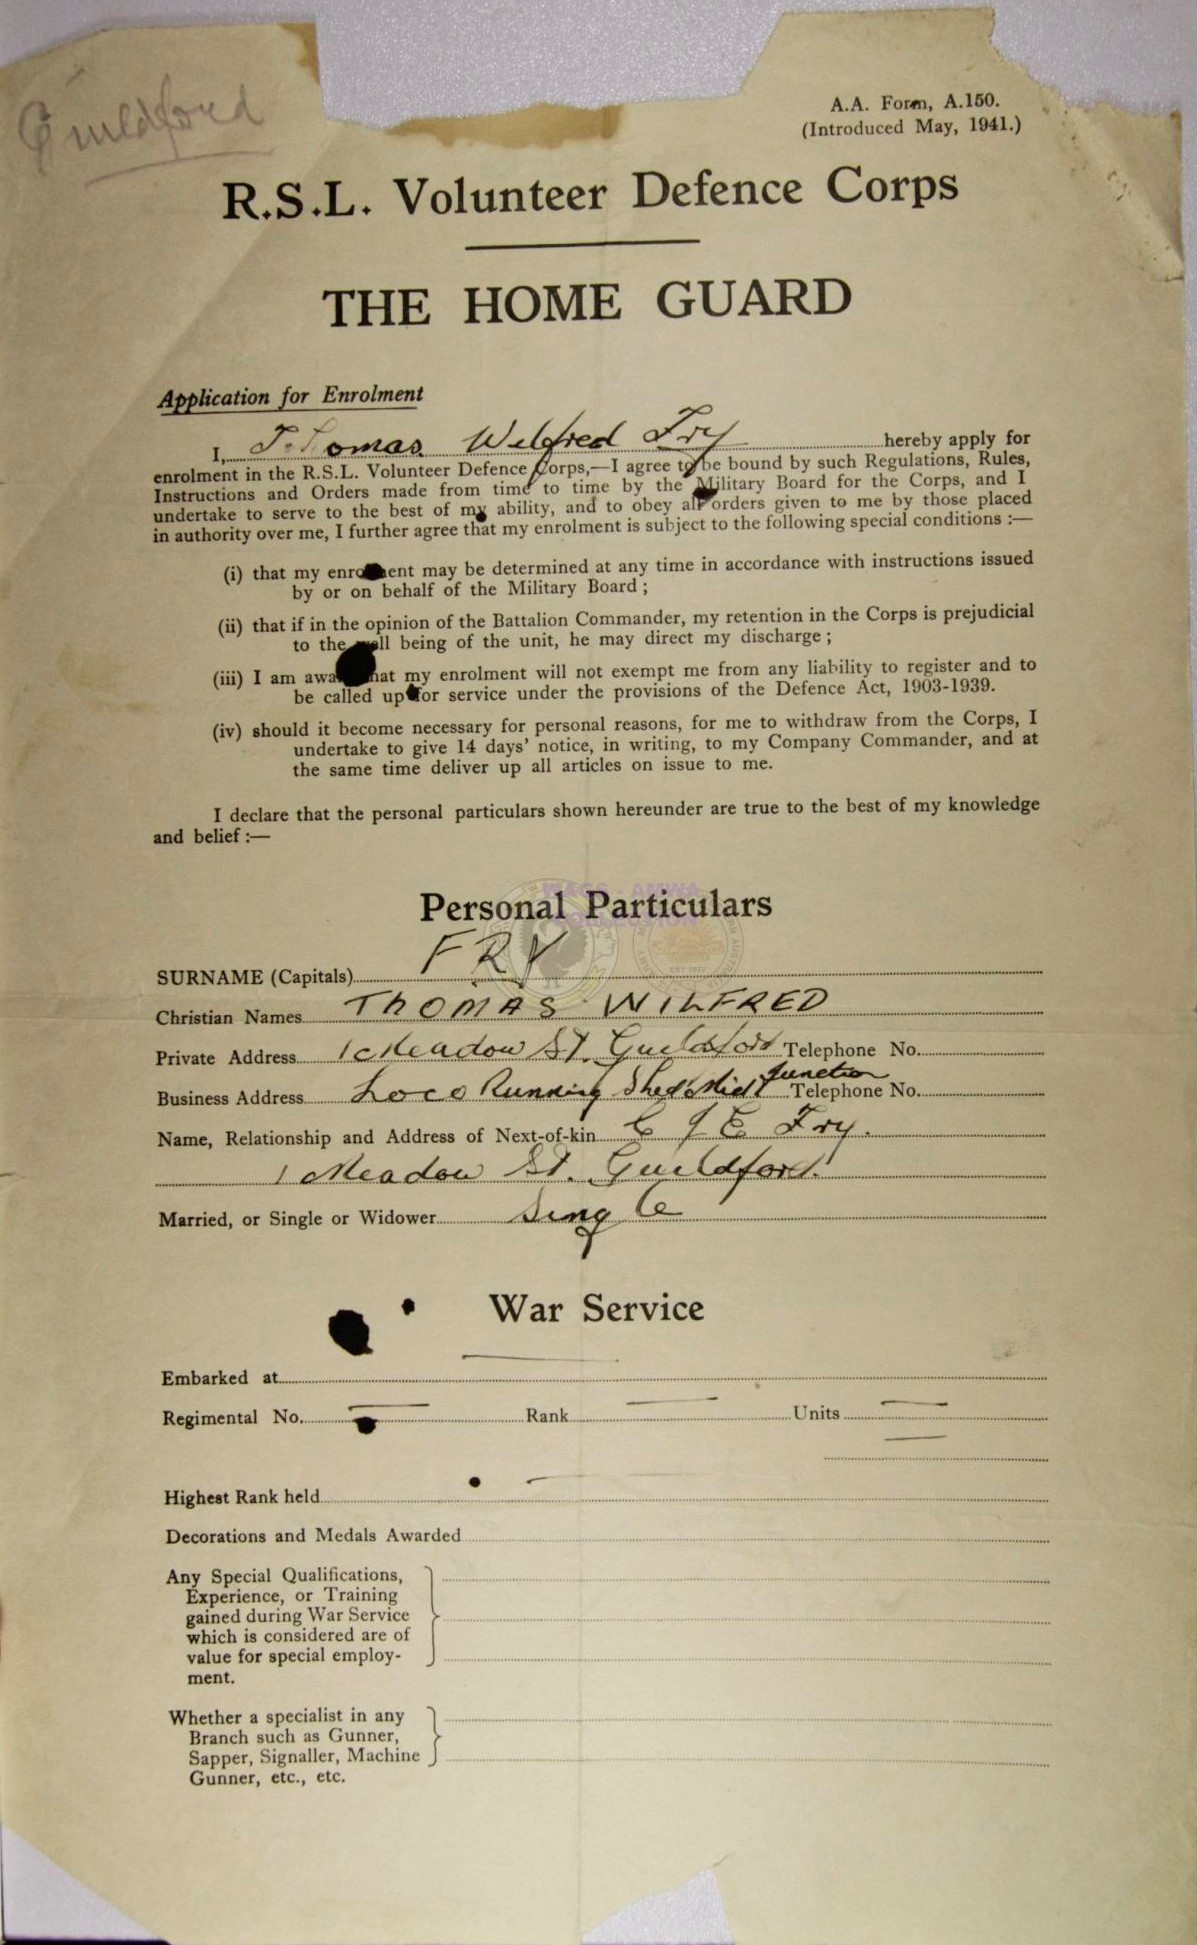 Guildford
A.A. Form, A.150.
(Introduced May, 1941.)
R.S.L. Volunteer Defence Corps
THE HOME GUARD
Application for Enrolment
I, Thomas Wilfred Fry hereby apply for
enrolment in the R.S.L. Volunteer Defence Corps,—I agree to be bound by such Regulations, Rules,
Instructions and Orders made from time to time by the Military Board for the Corps, and I
undertake to serve to the best of my ability, and to obey all orders given to me by those placed
in authority over me, I further agree that my enrolment is subject to the following special conditions :—
(i) that my enrolment may be determined at any time in accordance with instructions issued
by or on behalf of the Military Board ;
(ii) that if in the opinion of the Battalion Commander, my retention in the Corps is prejudicial
to the well being of the unit, he may direct my discharge ;
(iii) I am aware that my enrolment will not exempt me from any liability to register and to
be called up for service under the provisions of the Defence Act, 1903-1939.
(iv) should it become necessary for personal reasons, for me to withdraw from the Corps, I
undertake to give 14 days' notice, in writing, to my Company Commander, and at
the same time deliver up all articles on issue to me.
I declare that the personal particulars shown hereunder are true to the best of my knowledge
and belief :—
WAGS - AMWA
COLLECTION
Personal Particulars
SURNAME (Capitals) FRY
Christian Names THOMAS WILFRED
Private Address 1 Meadow St. Guildford Telephone No.
Business Address Loco Running Shed Mid Junction Telephone No.
Name, Relationship and Address of Next-of-kin C J E Fry.
1 Meadow St. Guildford.
Married, or Single or Widower Single
War Service
Embarked at
Regimental No. Rank Units
Highest Rank held
Decorations and Medals Awarded
Any Special Qualifications,
Experience, or Training
gained during War Service
which is considered are of
value for special employ-
ment.
Whether a specialist in any
Branch such as Gunner,
Sapper, Signaller, Machine
Gunner, etc., etc.